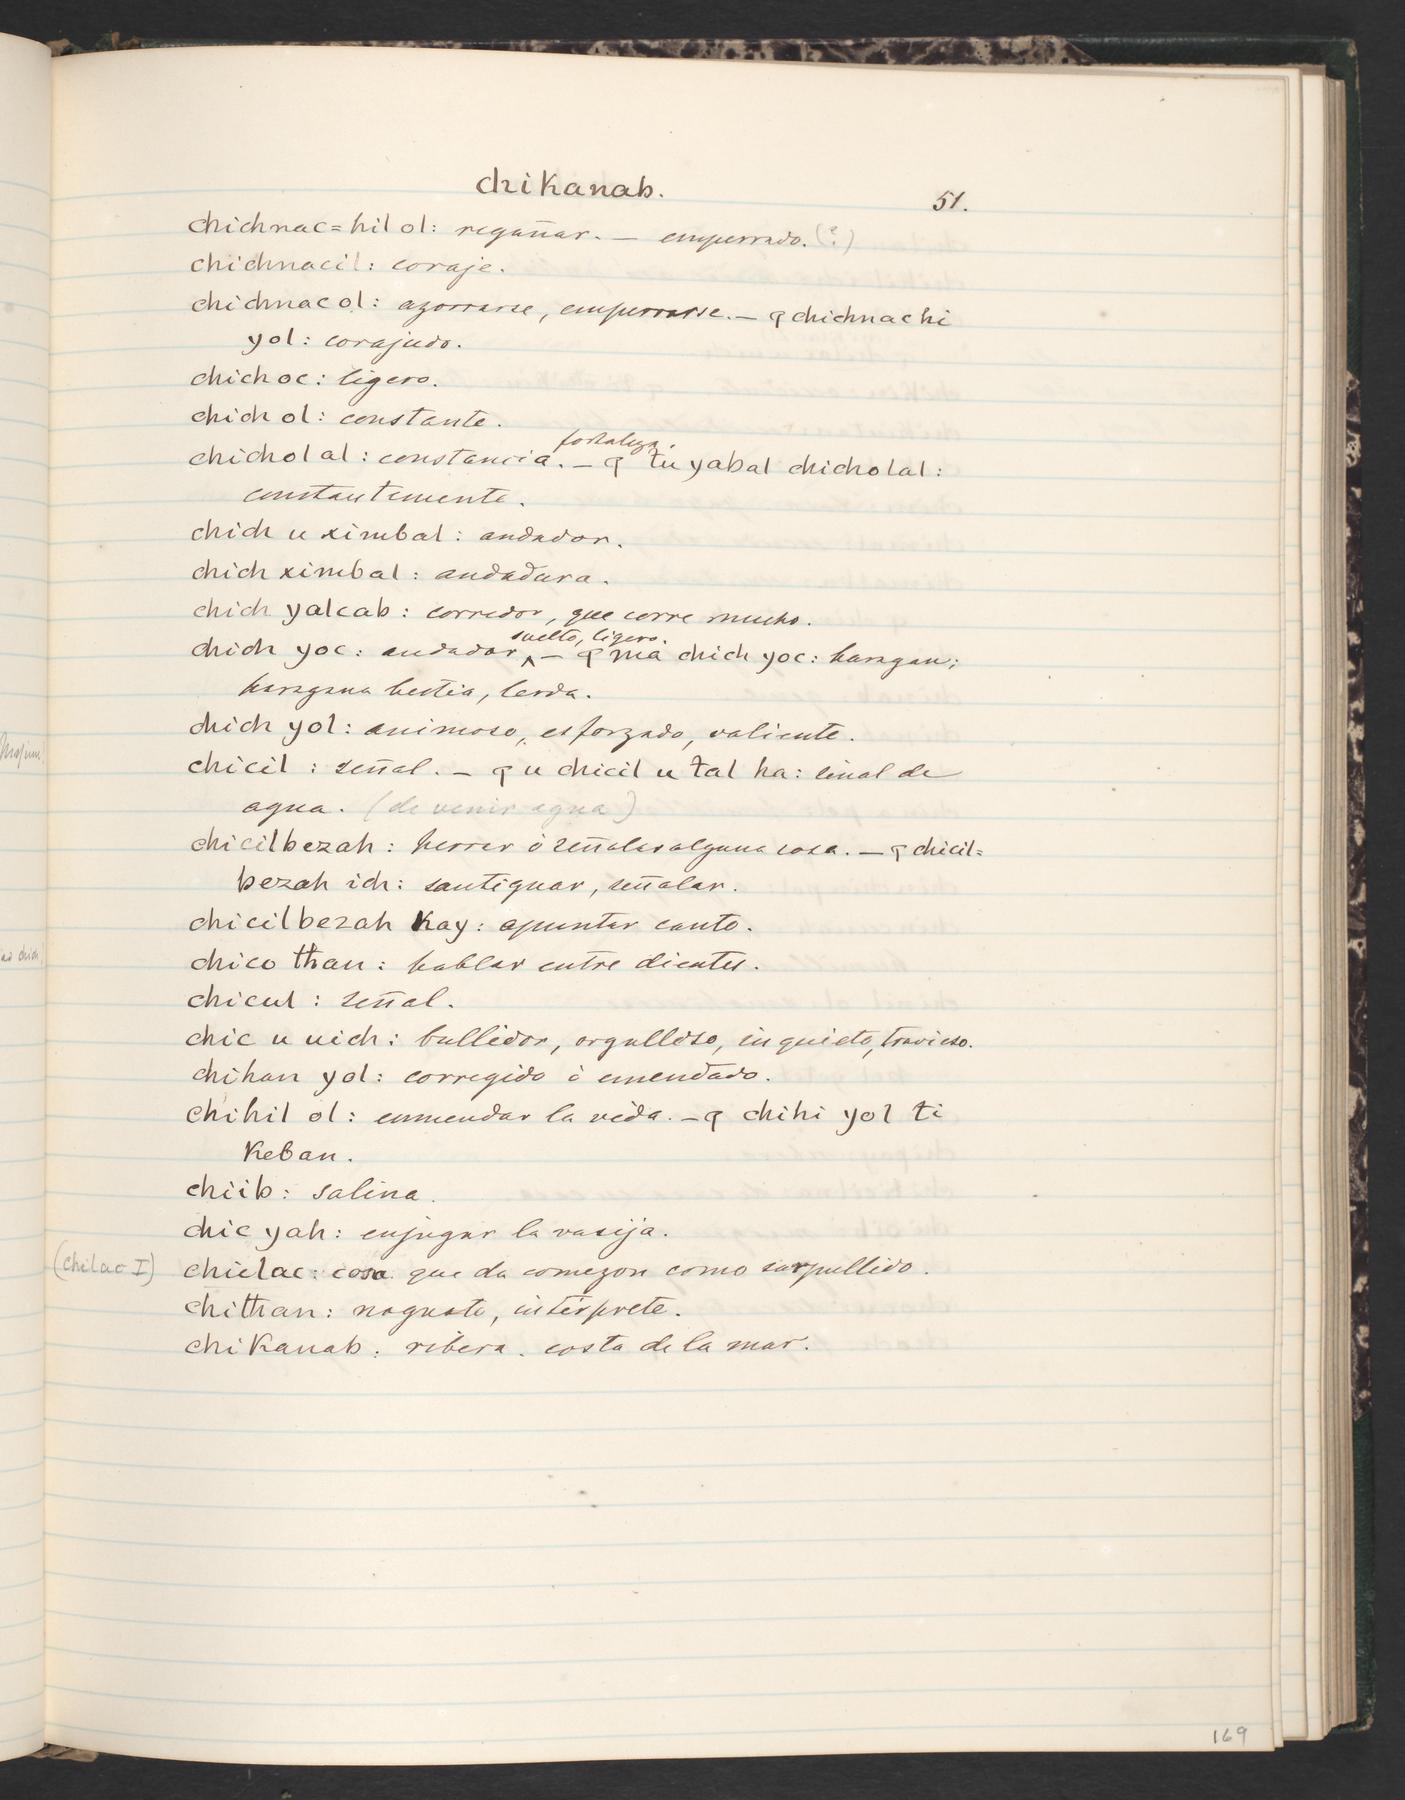 chikanab.
51.
chichnac=hil ol: regañar. — emperrado. (?)
chichnacil: coraje.
chichnac ol: azorrarse, emperrarse. — q chichnachi
yol: corajudo.
chich oc: ligero.
chich ol: constante.
fortaleza.
chicholal: constancia. — q tu yabal chicholal:
constantemente.
chich u ximbal: andador.
chich ximbal: andadura.
chich yalcab: corredor, que corre mucho.
suelto, ligero.
chich yoc: andador ^ — q ma chich yoc: haragan;
haragana bestia, lerda.
chich yol: animoso, esforzado, valiente.
chicil: señal. — q u chicil u tal ha: sinal de
agua. (de venir agua)
chicilbezah: herrar ó señalar alguna cosa. — q chicil=
bezah ich: santiguar, señalar.
chicilbezah Kay: apuntar canto.
chico than: hablar entre dientes.
chicul: señal.
chic u uich: bullidor, orgulloso, inquieto, travieso.
chihan yol: corregido ó emendado.
chihil ol: enmendar la vida. — q chihi yol ti
Keban.
chiib: salina.
chic yah: enjugar la vasija.
(chilac I)
chielac: cosa que da comezon como sarpullido.
chithan: naguato, intérprete.
chiKanab: ribera. costa de la mar.
169